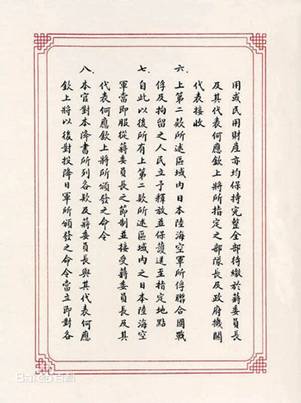 用或民用財產亦均保持完整全部待繳於蔣委員長
及其代表何應欽上將所指定之部隊長及政府機關
代表接收
六、上第二款所述區域內日本陸海空軍所俘聯合國戰
俘及拘留之人民立予釋放並保護送至指定地點
七、自此以後所有上第二款所述區域內之日本陸海空
軍當即服從蔣委員長之節制並接受蔣委員長及其
代表何應欽上將所頒發之命令
八、本官對本降書所列各款及蔣委員長與其代表何應
欽上將以後對投降日軍所頒發之命令當立即對各
Baidu百科